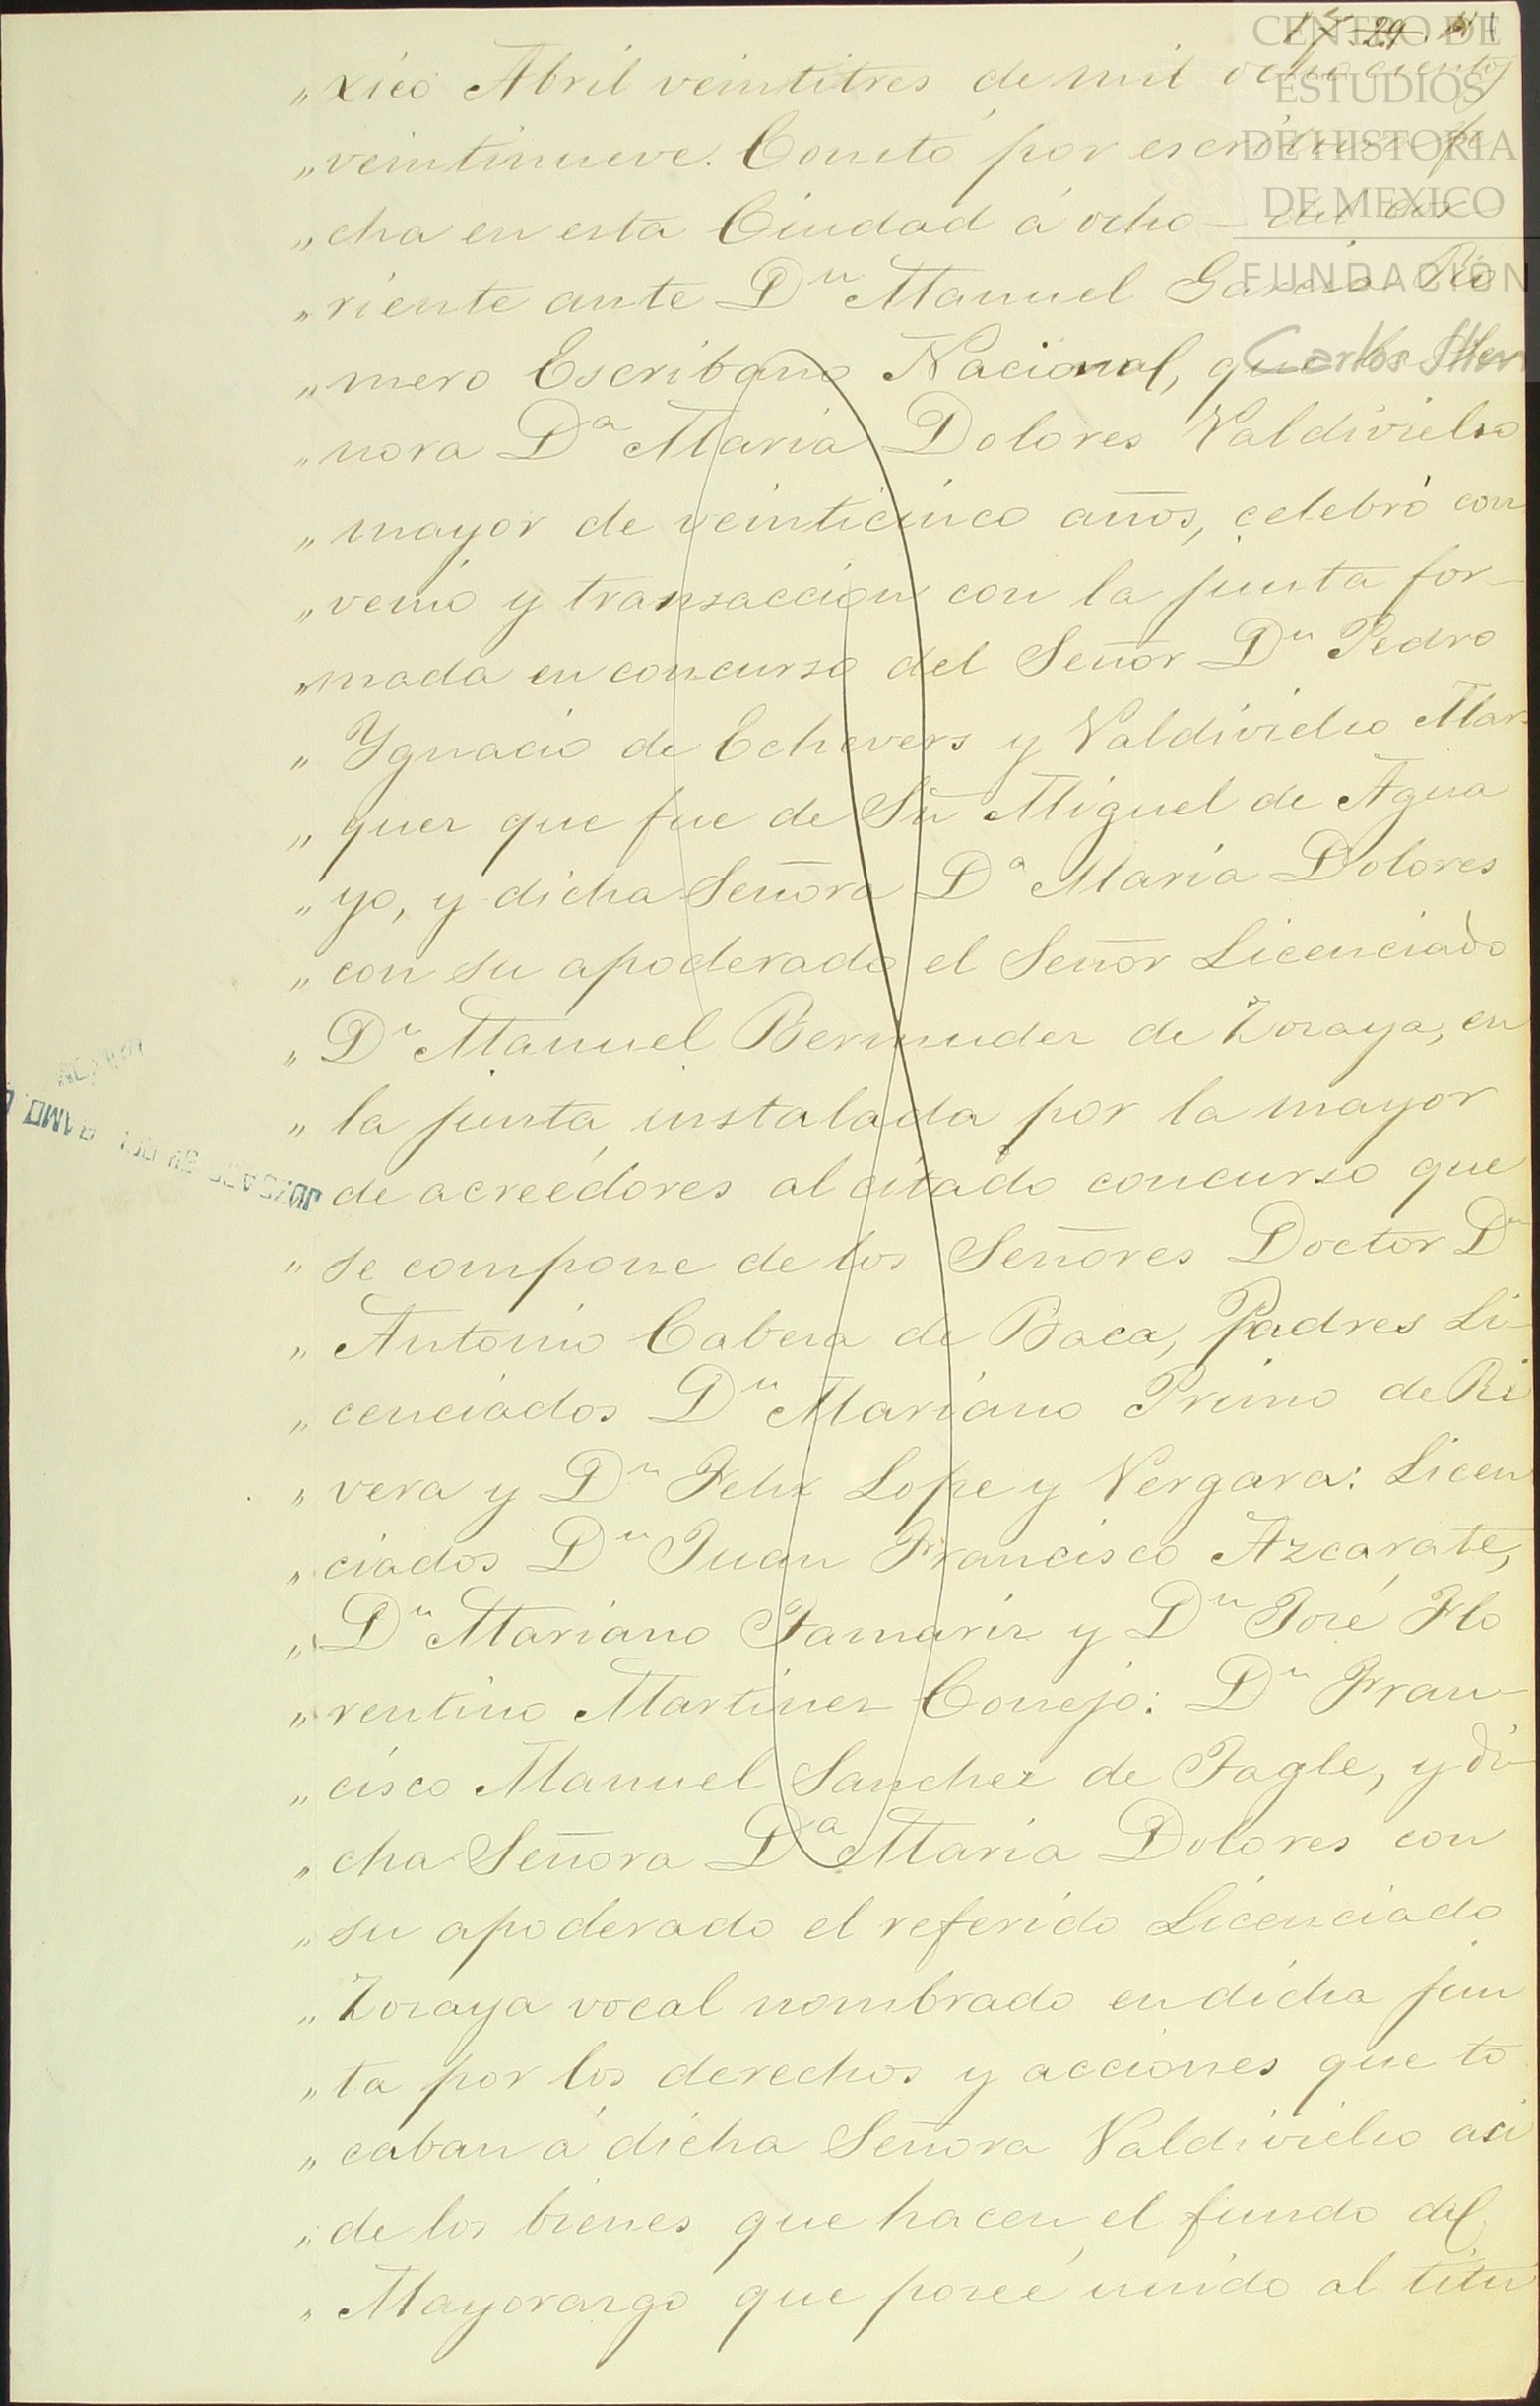 29
CENTRO DE
ESTUDIOS
DE HISTORIA
DE MEXICO
FUNDACIÓN
Carlos Slim
„xico Abril veintitres de mil ochocientos
„veintinueve. Constó por escritura fe
„cha en esta Ciudad á ocho del cor
„riente ante Dn Manuel Garcia Ro
„mero Escribano Nacional, que la Se
„nora Da Maria Dolores Valdivielso
„mayor de veinticinco años, celebró con
„venio y transaccion con la junta for-
„mada en concurso del Señor Dn Pedro
„Ygnacio de Echevers y Valdivielso Mar
„quez que fue de Sn Miguel de Agua
„yo, y dicha Señora Da Maria Dolores
„con su apoderado el Señor Licenciado
„Dn Manuel Bermudez de Zozaya, en
„la junta instalada por la mayor
de acreédores al citado concurso que
„se compone de los Señores Doctor Dn
„Antonio Cabeza de Baca, Padres Li-
„cenciados Dn Mariano Primo de Ri
„vera y Dn Felix Lope y Vergara: Licen
„ciados Dn Juan Francisco Azcarate,
„Dn Mariano Tamariz y Dn José Flo
„rentino Martinez Conejo: Dn Fran-
„cisco Manuel Sanchez de Tagle, y di-
„cha Señora Da Maria Dolores con
„su apoderado el referido Licenciado
„Zozaya vocal nombrado en dicha jun
„ta por los derechos y acciones que to
„caban á dicha Señora Valdivielso asi
„de los bienes que hacen el fundo del
„Mayorazgo que poseé unido al titu